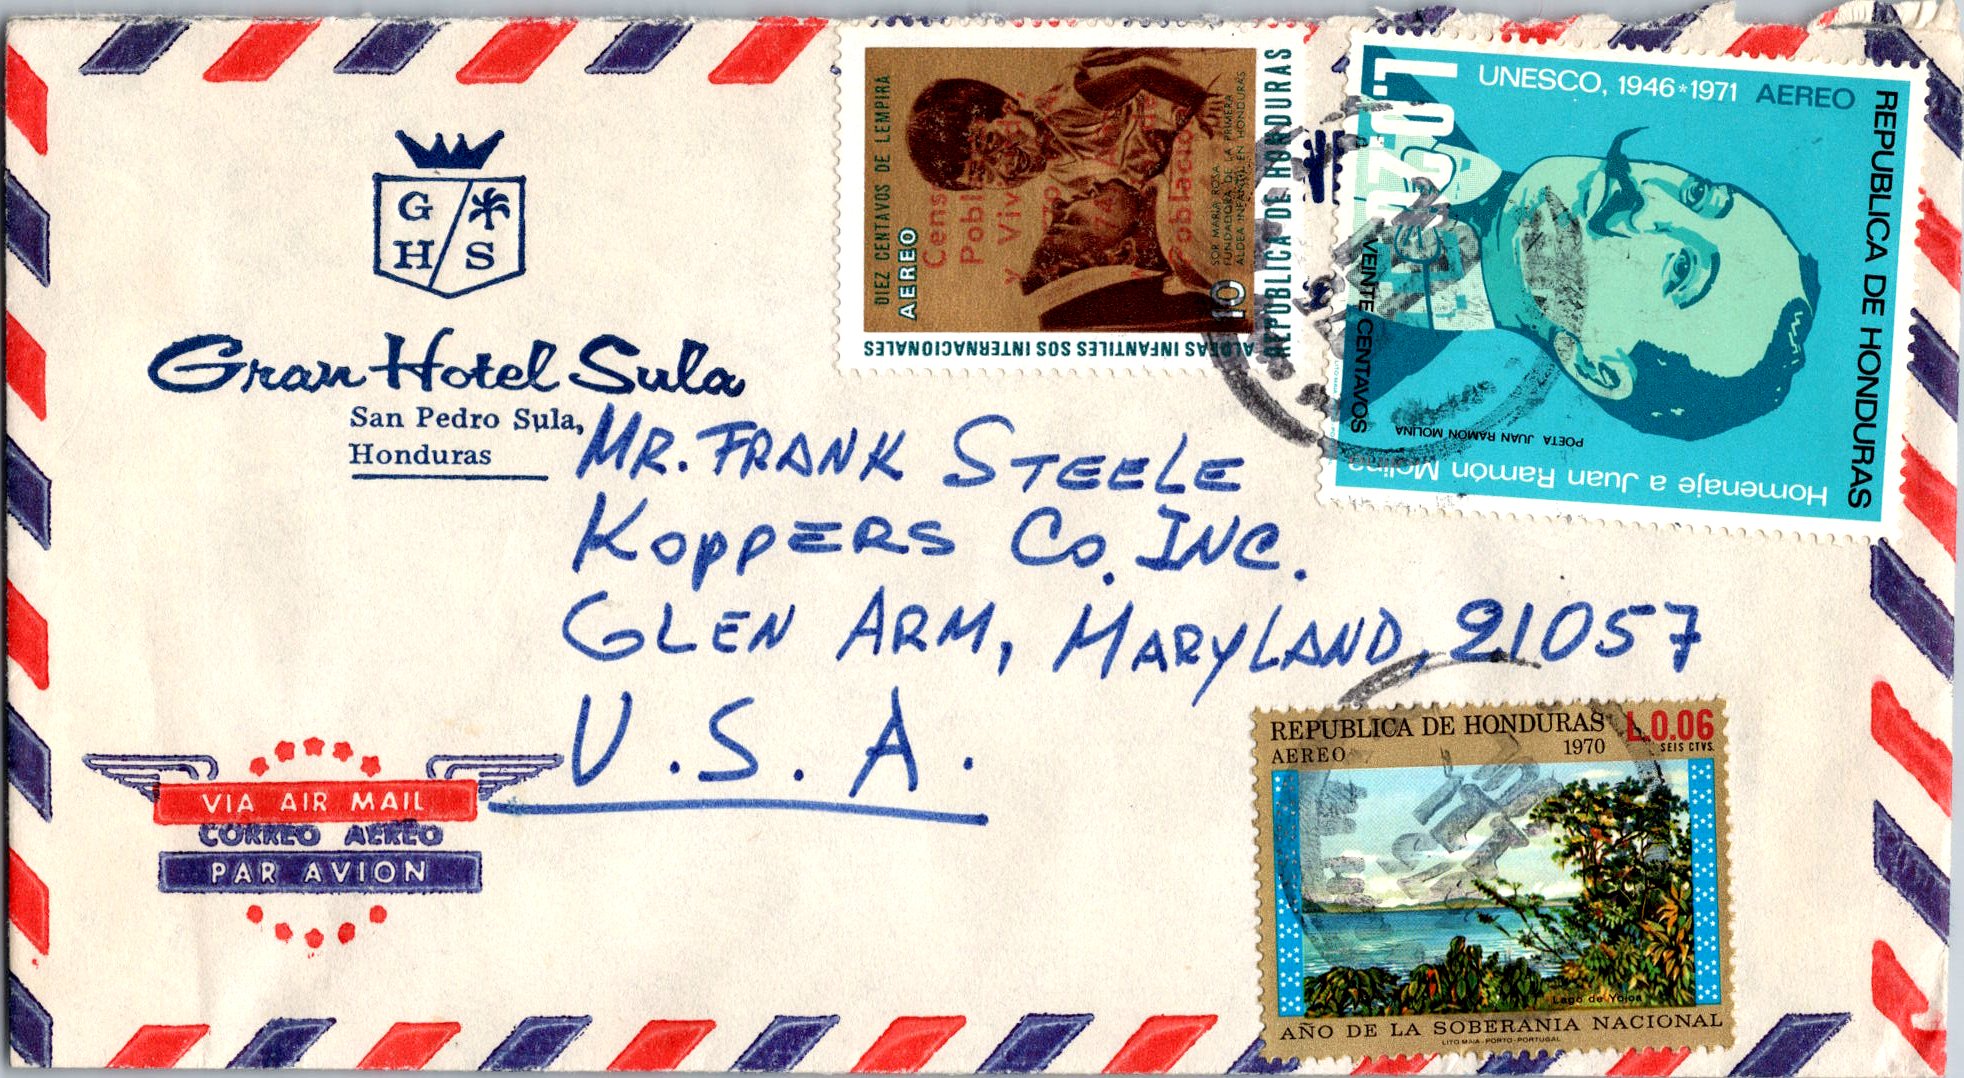 G
H S
Gran Hotel Sula
San Pedro Sula,
Honduras
MR. FRANK STEELE
KOPPERS CO. INC.
GLEN ARM, MARYLAND, 21057
U.S.A.
VIA AIR MAIL
CORREO AEREO
PAR AVION
DIEZ CENTAVOS DE LEMPIRA
AEREO
10
SOR MARIA ROSA
FUNDADORA DE LA PRIMERA
ALDEA INFANTIL EN HONDURAS
REPUBLICA DE HONDURAS
ALDEAS INFANTILES SOS INTERNACIONALES
UNESCO, 1946*1971 AEREO
REPUBLICA DE HONDURAS
L0.20
VEINTE CENTAVOS
POETA JUAN RAMON MOLINA
Homenaje a Juan Ramón Molina
REPUBLICA DE HONDURAS L.0.06
AEREO 1970 SEIS CTVS.
Lago de Yojoa
AÑO DE LA SOBERANIA NACIONAL
LITO MAIA-PORTO-PORTUGAL